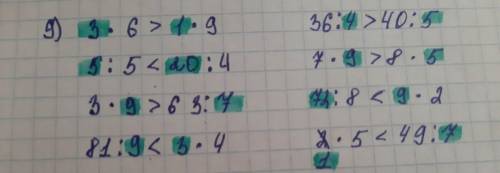 9) 3 · 6 > 1 · 9
5 : 5 < 20 : 4
3 · 9 > 6 3 : 7
81 : 9 < 3 · 4
36 : 4 > 40 : 5
7 · 9 > 8 · 5
72 : 8 < 9 · 2
2 · 5 < 49 : 7
1